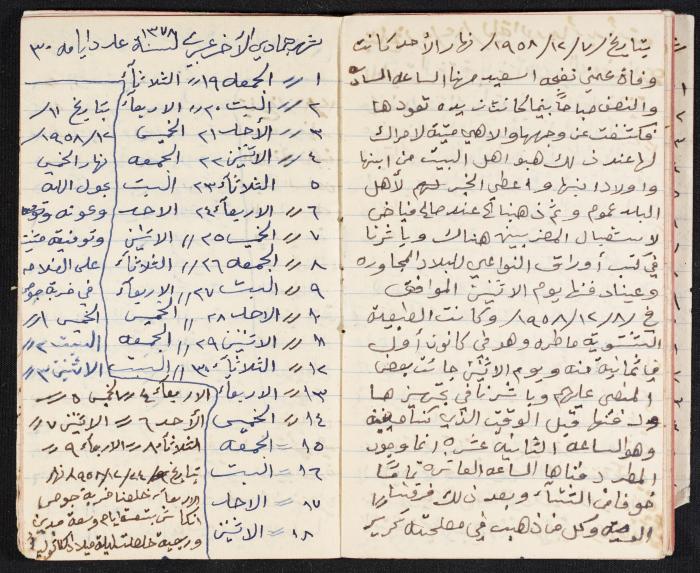 بتاريخ ٧/١٢/١٩٥٨/ نهار الأحد كانت
وفاة عمتي نفجه اسعيد مرنا الساعه
والنصف صباحاً بينما كانت تقودها
فكشفت عن وجهها والا هي ميتة
لها عند ذلك هبو اهل البيت من ابنها
واولاد ابنها و اعطى الخبر لأهل
البلد عموم هنالك عند صالح فياض
لاستقبال المعزيين هناك وباشرنا
في كتب أوراق النواعي للبلاد المجاوره
دفنها يوم الاثنين الموافق
في /٨/١٢/١٩٥٨ وكانت
ماطره وهو في كانون أول
في ثمانية منه ويوم الاثنين جائت بعض
عليهم وباشرنا في تجهيزها
ودفنها قبل الوقت الذي
وهو الساعه الثانية عشره انما وجود
المطر دفناها الساعه العاشره تماماً
خوفا من الشتاء وبعد ذلك فرقنا
وكل منا ذهب في مصلحته تحرير
شهر جمادي الآخر لسنة ١٣٧٨ عدد ايامه ٣٠
١ // الجمعه ١٩ // الثلاثاء
٢ // البت ٢٠ // الاربعاء
٣ // الأحد ٢١ الخميس
٤ // الاثنين ٢٢ الجمعه
٥ الثلاثاء ٢٣ البت
٦ // الاربعاء ٢٤ الاحد
٧ // الخميس ٢٥ // الاثنين
٨ // الجمعه ٢٦ // الثلاثاء
٩ // البت ٢٧ // الاربعاء
١٠ // الاحد ٢٨ // الخميس
١١ // الاثنين ٢٩ // الجمعه
١٢ // الثلاثاء ٣٠ // البت
١٣ // الاربعاء
١٤ // الخميس
١٥ = الجمعه
١٦ = البت
١٧ // الاحد
١٨ // الاثنين
بتاريخ ١١/
١٢/١٩٥٨/
نهار الخميس
بحول الله
وعونه
وتوفيقه
على الفلاحه
في خربة
الخميس ١//
البت ٢//
الاثنين ٣//
الاربعاء ٤ // الخميس ٥ //
الأحد ٦ // الاثنين ٧ //
الثلاثاء ٨ // الاربعاء ٩ //
بتاريخ ٢٤/١٢/١٩٥٨ نهار
الاربعاء خلصنا خربة